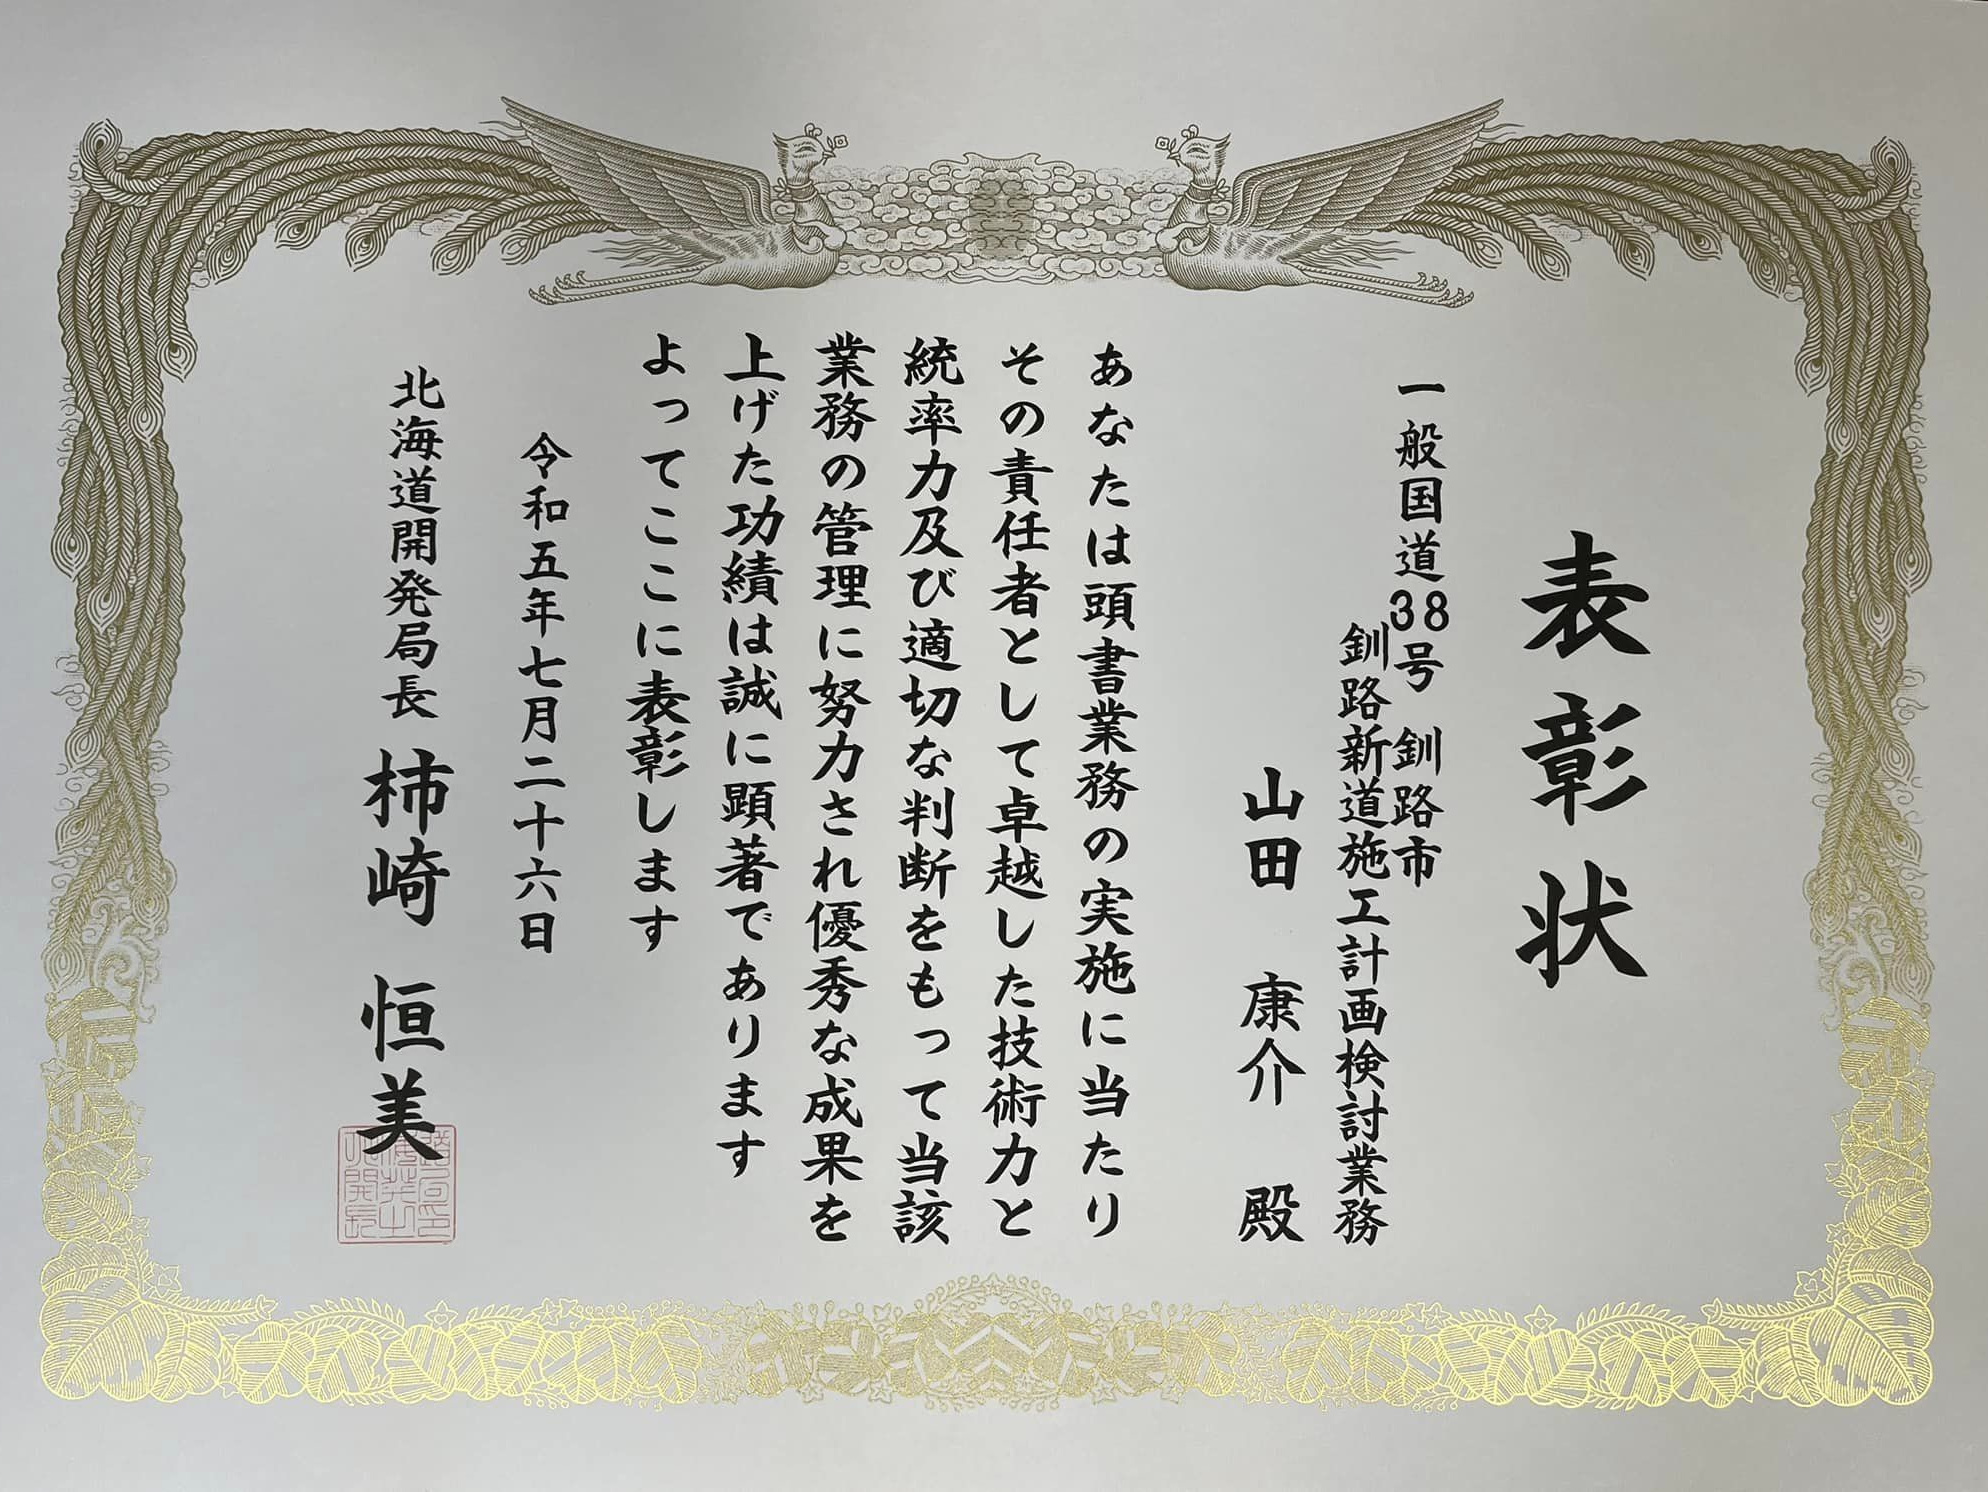 表彰状
一般国道38号 釧路市
釧路新道施工計画検討業務
山田 康介 殿
あなたは頭書業務の実施に当たり
その責任者として卓越した技術力と
統率力及び適切な判断をもって当該
業務の管理に努力され優秀な成果を
上げた功績は誠に顕著であります
よってここに表彰します
令和五年七月二十六日
北海道開発局長 柿崎 恒美